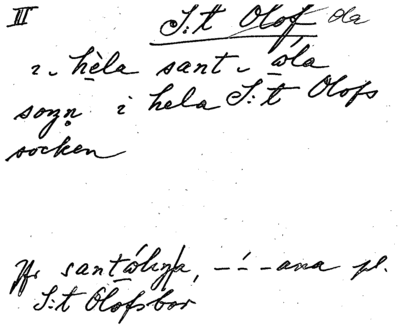 III S:t Olof ola
ı ˗ hèla sant ˗ óla
sozn i hela S:t Olofs
socken
santólna, –´–ana pl.
S:t Olofsbor